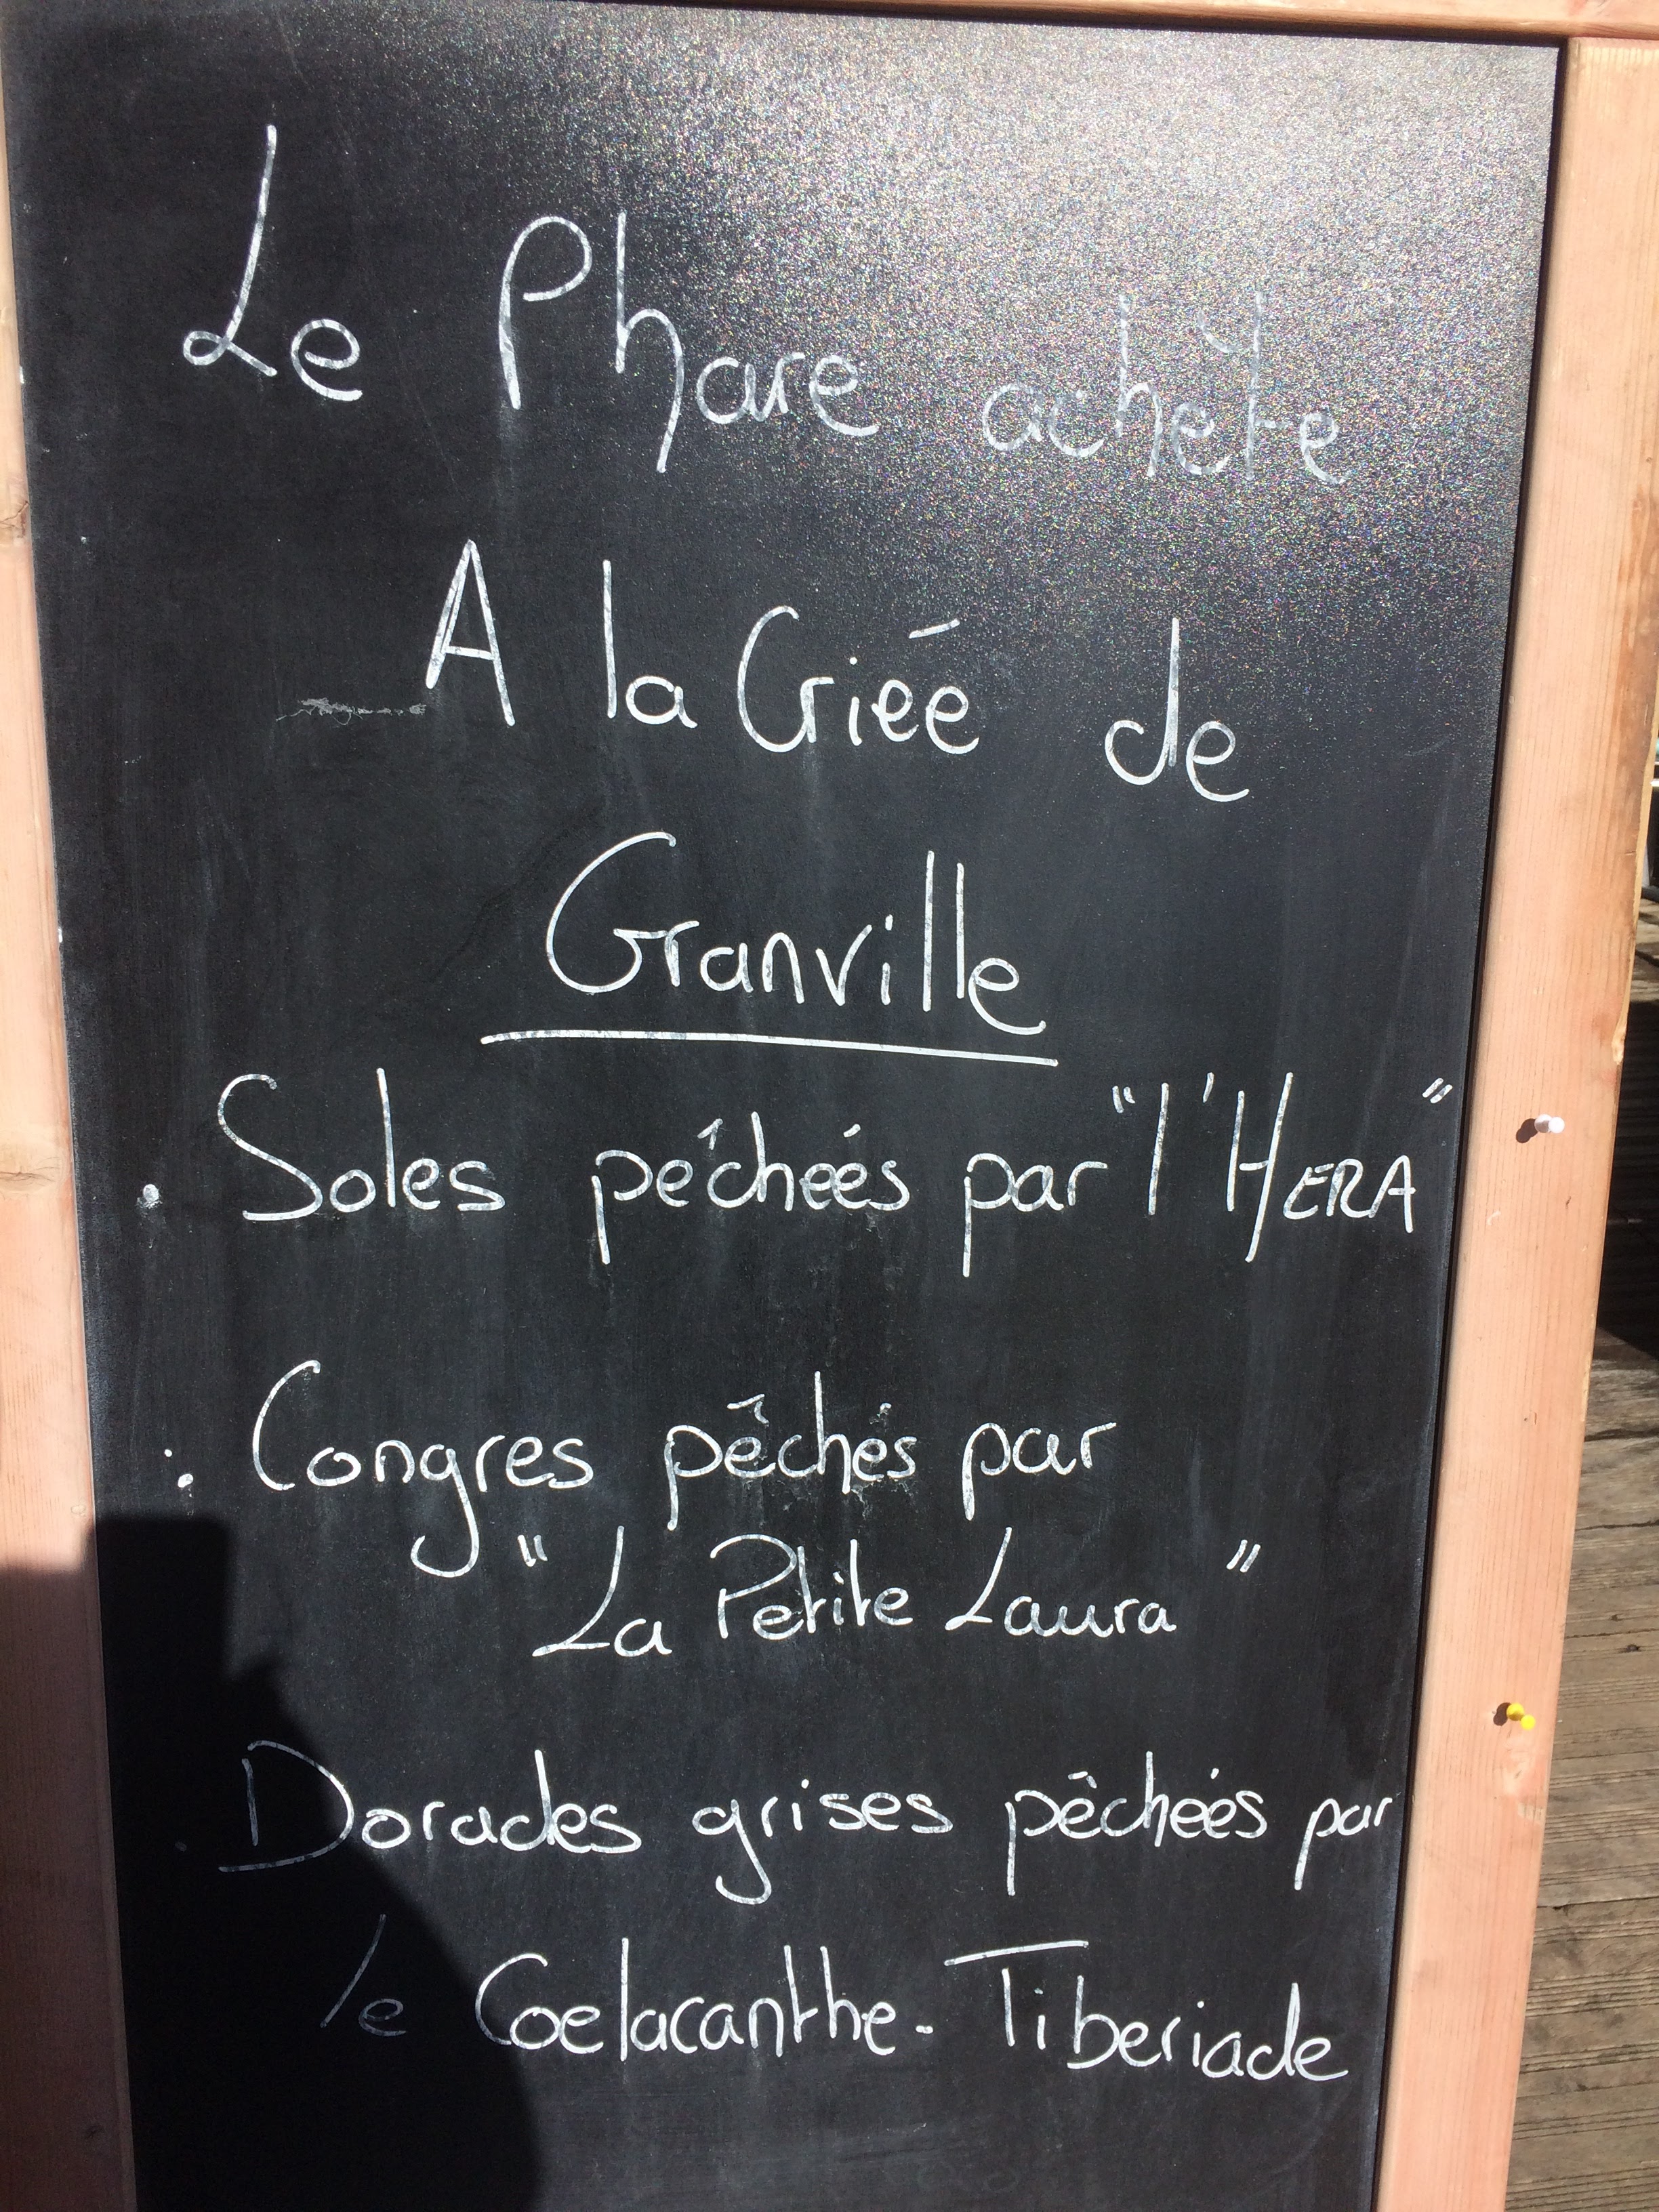 Le Phare achète
A la Criée de
Granville
. Soles pêchées par "l'HERA"
: Congres pêchés par
"La Petite Laura"
. Dorades grises pêchées par
le Coelacanthe - Tiberiade